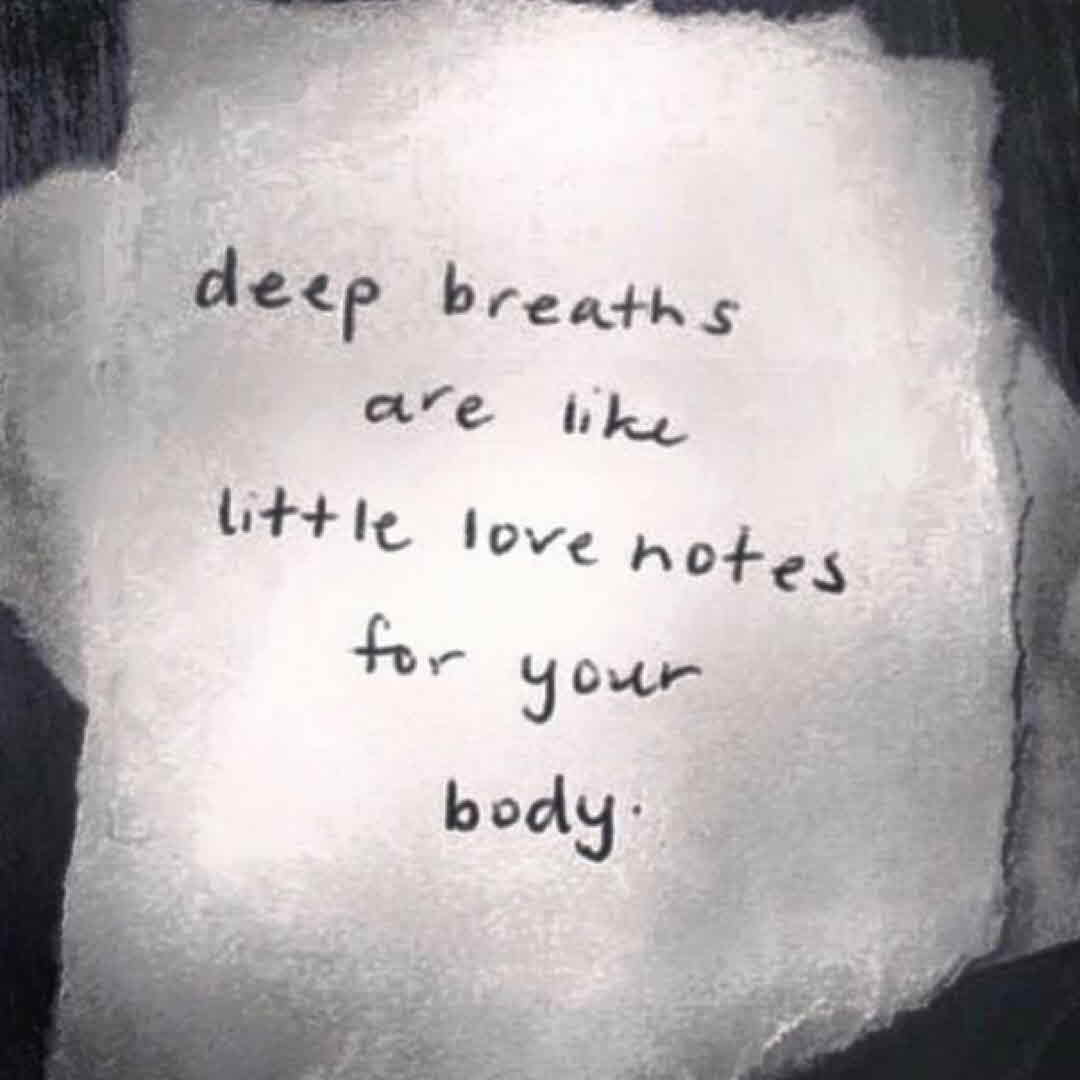 deep breaths
are like
little love notes
for your
body.